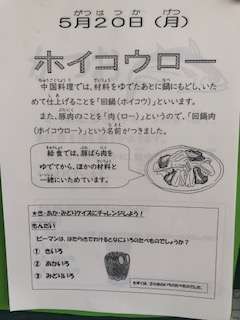 5月20日（月）
ホイコウロー
中国料理では、材料をゆでたあとに鍋にもどし、いた
めて仕上げることを「回鍋（ホイコウ）」といいます。
また、豚肉のことを「肉（ロー）」というので、「回鍋肉
（ホイコウロー）」という名前がつきました。
給食では、豚ばら肉を
ゆでてから、ほかの材料と
一緒にいためています。
★き・あか・みどりクイズにチャレンジしよう！
もんだい
ピーマンは、はたらきでわけるとなにいろのたべものでしょうか？
① きいろ
② あかいろ
③ みどりいろ